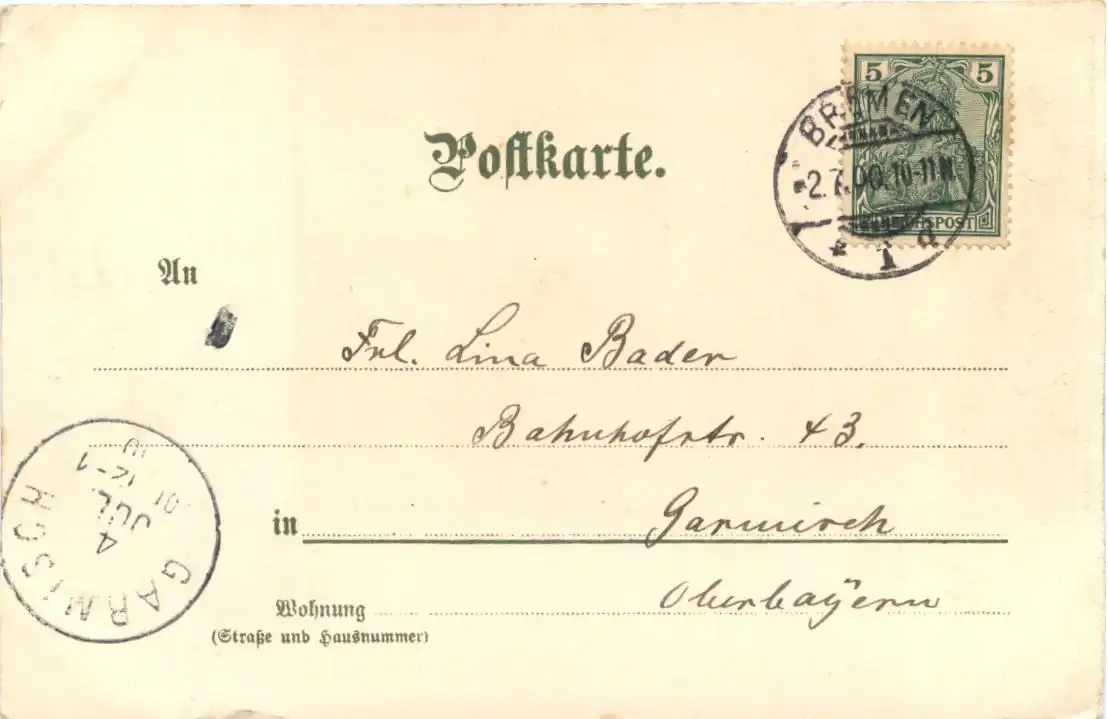 5 5
REICHSPOST
BREMEN
2.7.00. 10-11 N.
* 1 d
Postkarte.
An
Frl. Lina Bader
Bahnhofstr. 43.
in Garmisch
Wohnung Oberbayern
(Straße und Hausnummer)
GARMISCH
4
JUL.
12-1